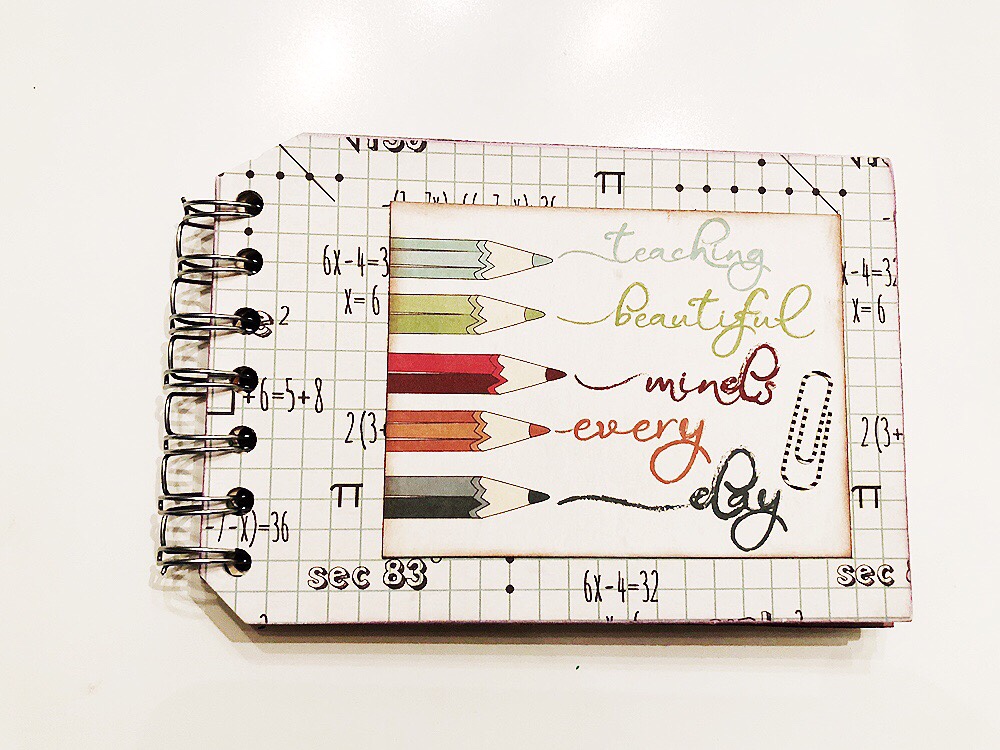 π
6x-4=3
x=6
2
+6=5+8
2(3+
π
-7-x)=36
sec 83°
6x-4=32
teaching
beautiful
minds
every
day
x-4=32
x=6
2(3+
π
sec